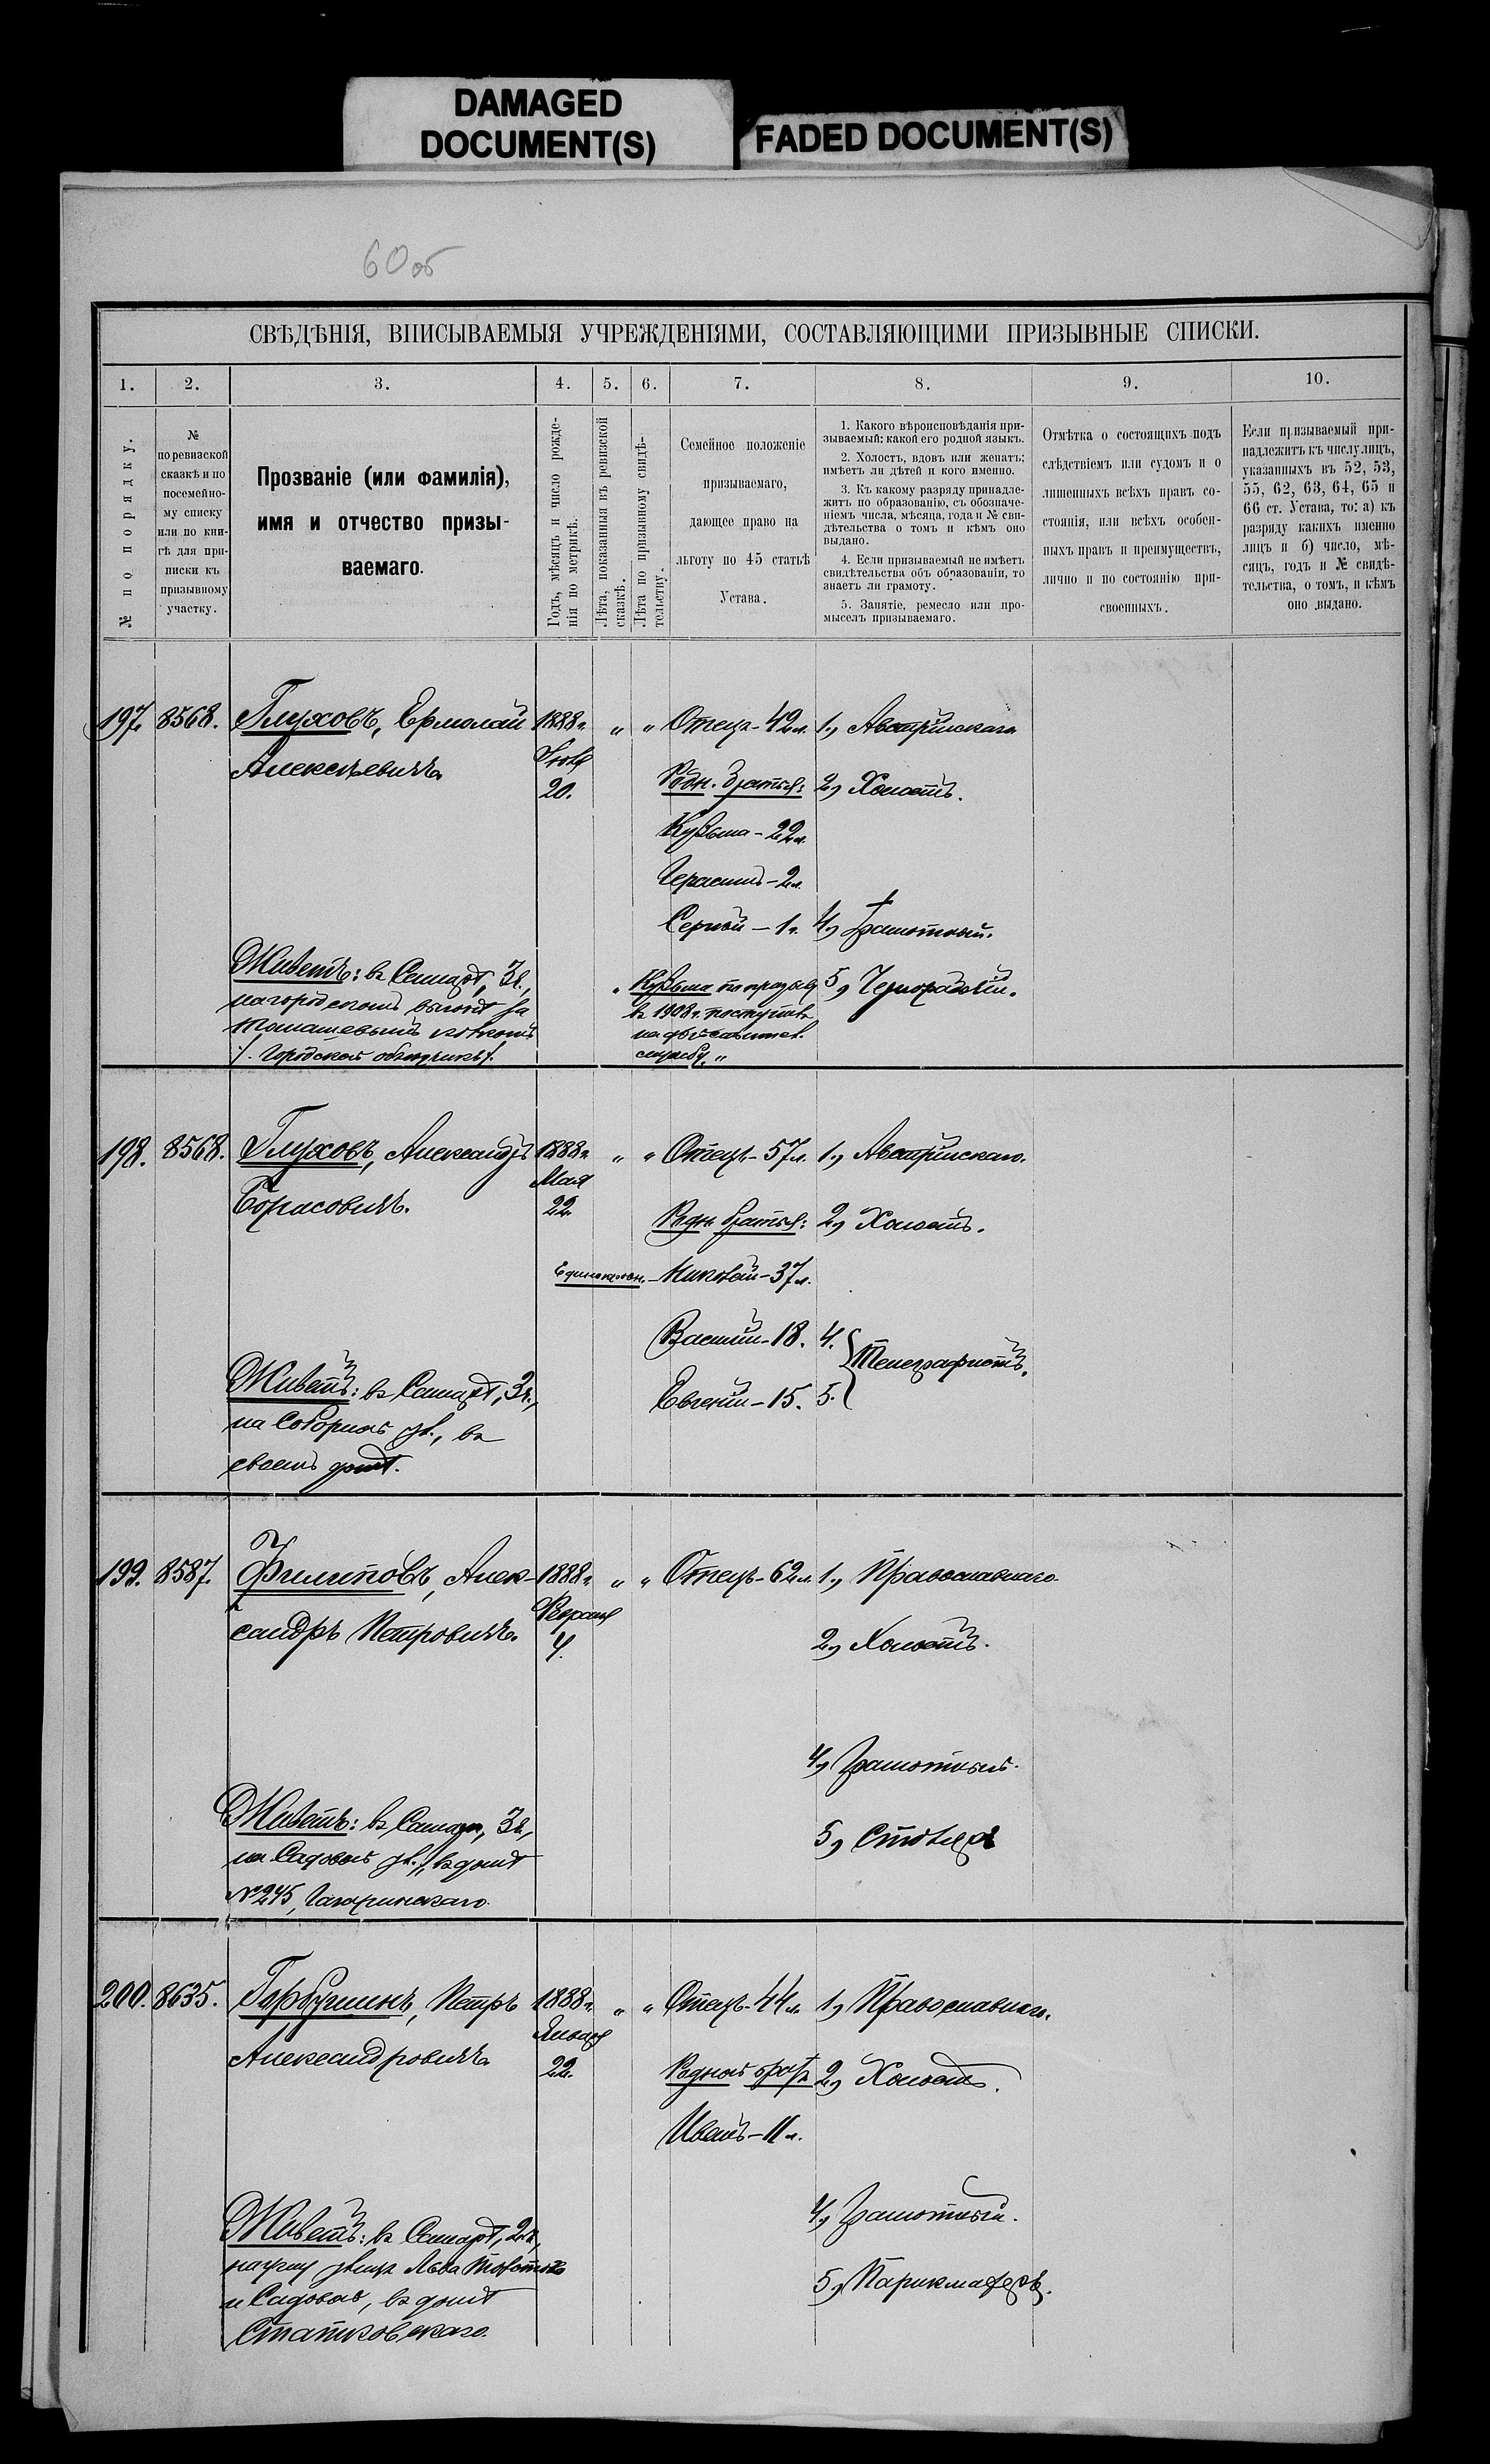 DAMAGED
DOCUMENT(S)
FADED DOCUMENT(S)
60об
СВѢДѢНІЯ, ВПИСЫВАЕМЫЯ УЧРЕЖДЕНІЯМИ, СОСТАВЛЯЮЩИМИ ПРИЗЫВНЫЕ СПИСКИ.
1. 2. 3. 4. 5. 6. 7. 8. 9. 10.
№ по порядку.
№
по ревизской
сказкѣ и по
посемейно-
му списку
или по кни-
гѣ для при-
писки къ
призывному
участку.
Прозваніе (или фамилія),
имя и отчество призы-
ваемаго.
Годъ, мѣсяцъ и число рожде-
нія по метрикѣ.
Лѣта, показанныя въ ревизской
сказкѣ.
Лѣта по призывному свидѣ-
тельству.
Семейное положеніе
призываемаго,
дающее право на
льготу по 45 статьѣ
Устава.
1. Какого вѣроисповѣданія при-
зываемый; какой его родной языкъ.
2. Холостъ, вдовъ или женатъ;
имѣетъ ли дѣтей и кого именно.
3. Къ какому разряду принадле-
житъ по образованію, съ обозначе-
ніемъ числа, мѣсяца, года и № сви-
дѣтельства о томъ и кѣмъ оно
выдано.
4. Если призываемый не имѣетъ
свидѣтельства объ образованіи, то
знаетъ ли грамоту.
5. Занятіе, ремесло или про-
мыселъ призываемаго.
Отмѣтка о состоящихъ подъ
слѣдствіемъ или судомъ и о
лишенныхъ всѣхъ правъ со-
стоянія, или всѣхъ особен-
ныхъ правъ и преимуществъ,
лично и по состоянію при-
своенныхъ.
Если призываемый при-
надлежитъ къ числу лицъ,
указанныхъ въ 52, 53,
55, 62, 63, 64, 65 и
66 ст. Устава, то: а) къ
разряду какихъ именно
лицъ и б) число, мѣ-
сяцъ, годъ и № свидѣ-
тельства, о томъ, и кѣмъ
оно выдано.
197. 8568. Глуховъ, Ермолай 1888г. " " Отецъ-42л. 1, Австрійскаго.
Алексѣевичъ.
20.
Родн. братья: 2, Холостъ.
Кузьма-22л.
Герасимъ-2л.
Сергѣй-1г. 4, Грамотный.
Живетъ: въ Самарѣ, 3ч.,
на городскомъ выгонѣ за
" Кузьма 5, Чернорабочій.
въ 1908г. поступилъ
службу."
198. 8568. Глуховъ, Александръ 1888г. " " Отецъ-57л. 1, Австрійскаго.
Мая
Борисовичъ. 22.
Родн. братья: 2, Холостъ.
Николай-37л.
Василій-18. 4.
Телеграфистъ.
Евгеній-15. 5.
Живетъ: въ Самарѣ, 3ч.,
на Соборной ул., въ
своемъ домѣ.
199. 8587. Филиповъ, Алек- 1888г. " " Отецъ-62л. 1, Православнаго.
Февраля
сандръ Петровичъ. 4.
2, Холостъ.
4, Грамотный.
5, Столяръ
Живетъ: въ Самарѣ, 3ч.,
на Садовой ул., въ домѣ
№245, Гагаринскаго.
200. 8635. Горбушинъ, Петръ 1888г. " " Отецъ-44л. 1, Православнаго.
Января
Александровичъ 22.
Родной братъ 2, Холостъ.
Иванъ-11л.
4, Грамотный.
5, Парикмахеръ.
Живетъ: въ Самарѣ, 2ч.,
на углу улицъ Льва Толстого
и Садовой, въ домѣ
Статковскаго.